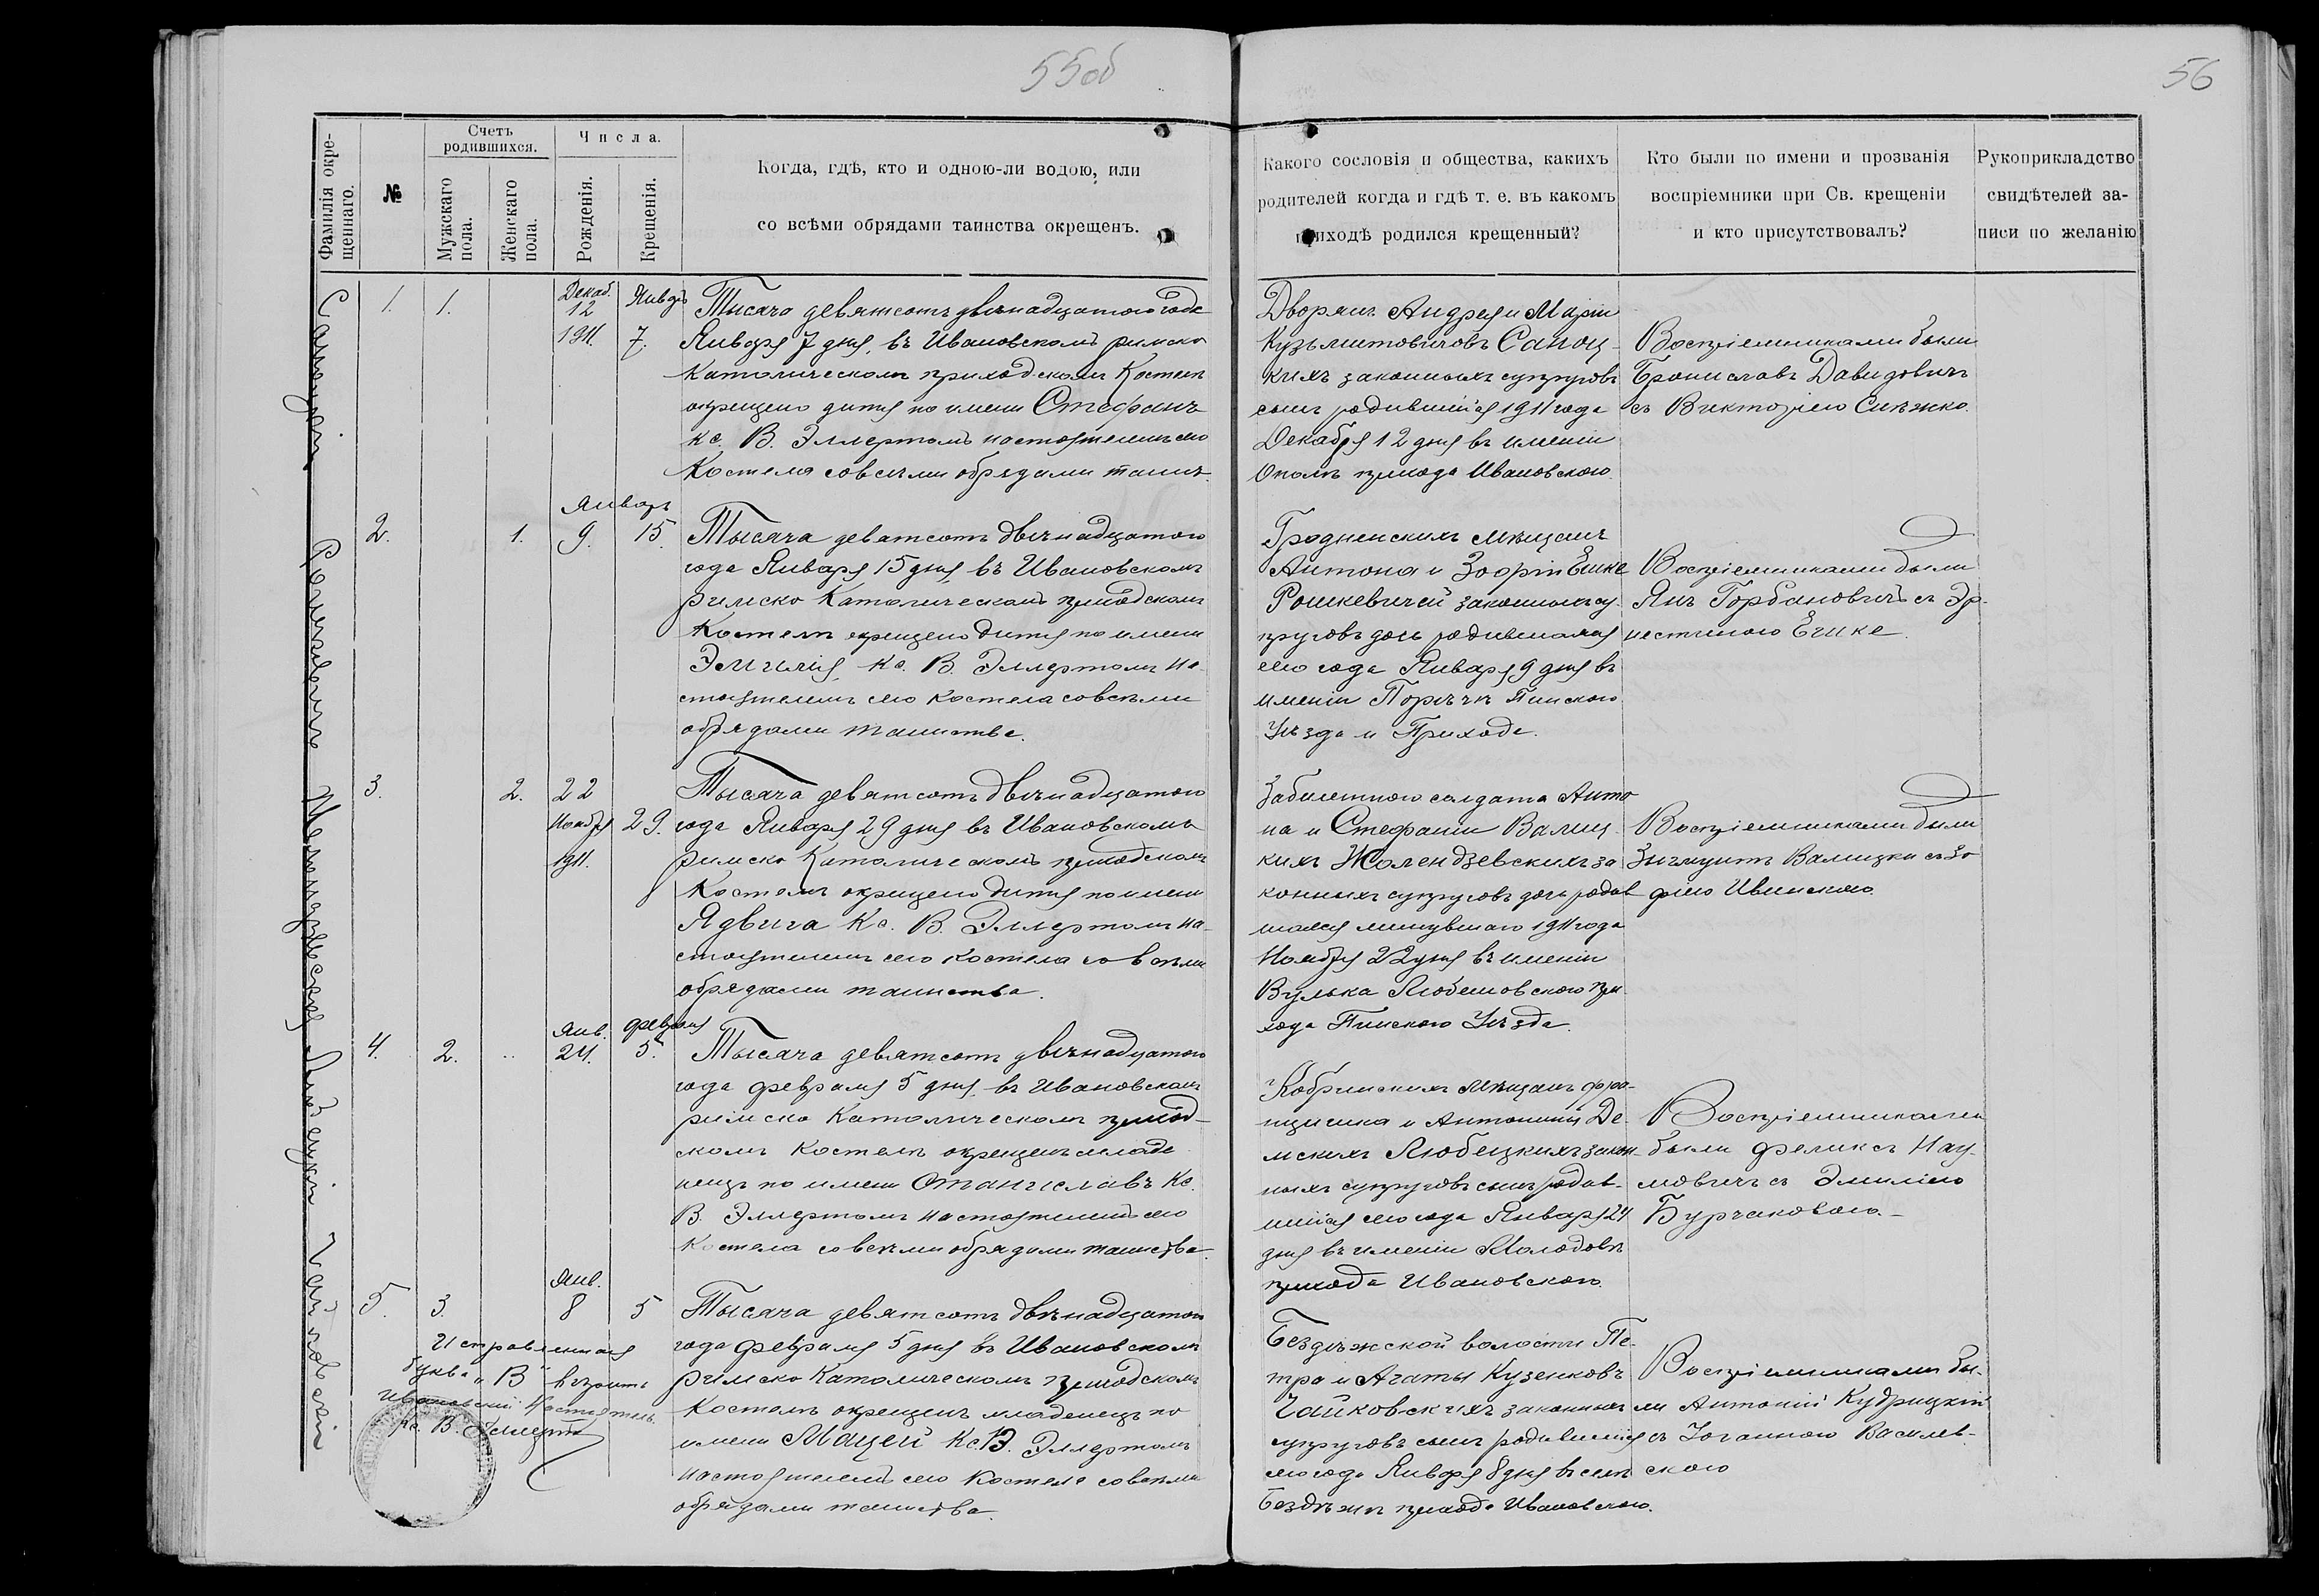 55об
56
Фамилія окре-
щеннаго.
№
Счетъ
родившихся.
Мужскаго
пола.
Женскаго
пола.
Числа.
Рожденія.
Крещенія.
Когда, гдѣ, кто и одною-ли водою, или
со всѣми обрядами таинства окрещенъ.
Какого сословія и общества, какихъ
родителей когда и гдѣ т. е. въ какомъ
приходѣ родился крещенный?
Кто были по имени и прозванія
воспріемники при Св. крещеніи
и кто присутствовалъ?
Рукоприкладство
свидѣтелей за-
писи по желанію
Рошкевичъ
Любецкій
Чайковскій
1.
1.
Декаб.
12
1911.
Январь
7.
Тысяча девятсотъ двѣнадцатого года
Января 7 дня, въ Ивановскомъ римско
Католическомъ приходскомъ Костелѣ
окрещено дитя по имени Стефанъ
кс. В. Эллертомъ настоятелемъ сего
Костела совсѣми обрядами таинъ.
Дворянъ Андрея и Маріи
Кузьмитовичовъ Саноц-
кихъ законныхъ супруговъ
сынъ родившійся 1911 года
Декабря 12 дня въ имѣніи
Ополѣ прихода Ивановского.
Воспріемниками были
Брониславъ Давидовичъ
съ Викторіею Снѣжко.
Январь
2.
1.
9.
15.
Тысяча девятсотъ двѣнадцатого
года Января 15 дня, въ Ивановскомъ
римско Католическомъ приходскомъ
Костелѣ окрещено дитя по имени
Эмилія, кс. В. Эллертомъ на-
стоятелемъ сего костела совсѣми
обрядами таинства.
Гродненскихъ мѣщанъ
Антона и Зофіи Енике
Рошкевичей законныхъ су-
пруговъ дочь родившаяся
сего года Января 9 дня въ
имѣніи Порѣчѣ Пинского
Уѣзда и Прихода.
Воспріемниками были
Янъ Горбановичъ съ Эр-
нестиною Енике.
3.
2.
22
Ноября
1911.
29.
Тысяча девятсотъ двѣнадцатого
года Января 29 дня въ Ивановскомъ
римско Католическомъ приходскомъ
Костелѣ окрещено дитя по имени
Ядвига Кс. В. Эллертомъ на-
стоятелемъ сего костела совсѣми
обрядами таинства.
Забилетного солдата Анто
на и Стефаніи Валиц-
кихъ Жолендзевскихъ за
конныхъ супруговъ дочь родив
шаяся минувшаго 1911 года
Ноября 22 дня въ имѣніи
Вулька Любешовского при-
хода Пинского Уѣзда.
Воспріемниками были
Зыгмунтъ Валицки съ Зо
фіею Ивинскою.
Янв.
февраля
4.
2.
24.
5.
Тысяча девятсотъ двѣнадцатого
года февраля 5 дня, въ Ивановскомъ
римско Католическомъ приход-
скомъ Костелѣ окрещенъ младе
нецъ по имени Станиславъ Кс.
В. Эллертомъ настоятелемъ сего
Костела совсѣми обрядами таинства.
Кобринскихъ мѣщанъ фра-
нцишка и Антонины Де-
мскихъ Любецкихъ закон-
ныхъ супруговъ сынъ родив-
шійся сего года Января 24
дня въ имѣніи Молодовѣ
прихода Ивановского.
Воспріемниками
были феликсъ Нау-
мовичъ съ Эмиліею
Бурчаковою.
Янв.
5.
3.
8
5
Тысяча девятсотъ двѣнадцатого
года февраля 5 дня въ Ивановскомъ
римско Католическомъ приходскомъ
Костелѣ окрещенъ младенецъ по
имени Мацей Кс. В. Эллертомъ
настоятелемъ сего Костела совсѣми
обрядами таинства.
Бездѣжской волости Пе-
тра и Агаты Кузенковъ
Чайковскихъ законныхъ
супруговъ сынъ родившійся
сего года Января 8 дня въ селѣ
Бездѣжѣ прихода Ивановского.
Воспріемниками бы-
ли Антоній Кудрицкій
съ Іоганною Василев-
скою
Исправленная
буква „В" вѣрить
Ивановскій Настоятель
Кс. В. Эллертъ